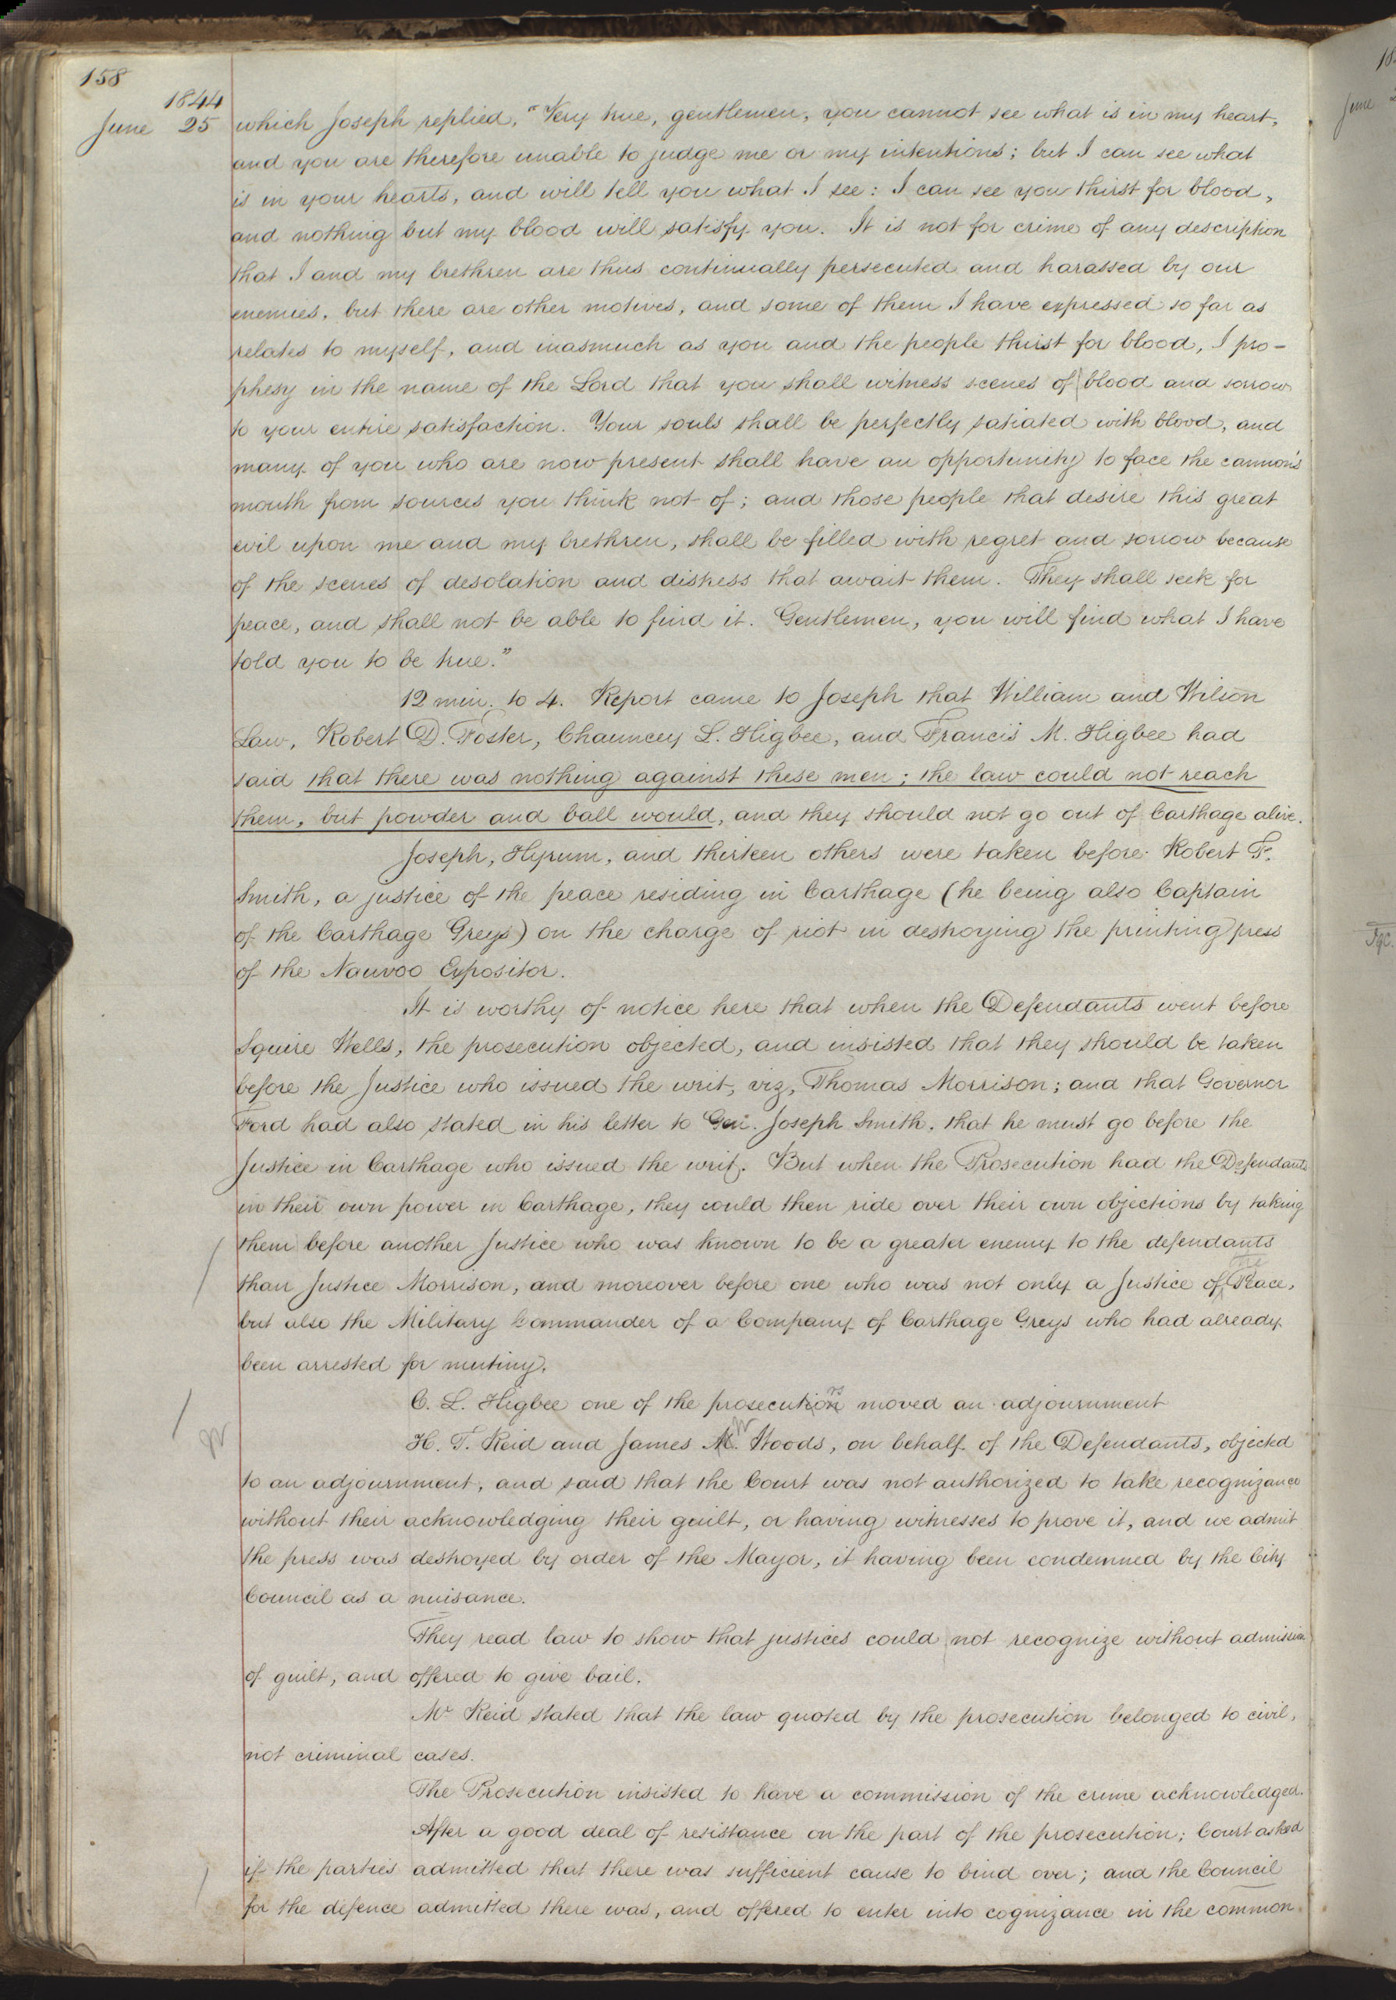 158
1844
June 25 which Joseph replied, "Very true, gentlemen, you cannot see what is in my heart,
and you are therefore unable to judge me or my intentions; but I can see what
is in your hearts, and will tell you what I see: I can see you thirst for blood,
and nothing but my blood will satisfy you. It is not for crime of any description
that I and my brethren are thus continually persecuted and harassed by our
enemies, but there are other motives, and some of them I have expressed so far as
relates to myself, and inasmuch as you and the people thirst for blood, I pro-
phesy in the name of the Lord that you shall witness scenes of blood and sorrow
to your entire satisfaction. Your souls shall be perfectly satiated with blood, and
many of you who are now present shall have an opportunity to face the cannon's
mouth from sources you think not of; and those people that desire this great
evil upon me and my brethren, shall be filled with regret and sorrow because
of the scenes of desolation and distress that await them. They shall seek for
peace, and shall not be able to find it. Gentlemen, you will find what I have
told you to be true."
12 min. to 4. Report came to Joseph that William and Wilson
Law, Robert D. Foster, Chauncey L. Higbee, and Francis M. Higbee had
said that there was nothing against these men; the law could not reach
them, but powder and ball would, and they should not go out of Carthage alive.
Joseph, Hyrum, and thirteen others were taken before Robert F.
Smith, a justice of the peace residing in Carthage (he being also Captain
of the Carthage Greys) on the charge of riot in destroying the printing press
of the Nauvoo Expositor.
It is worthy of notice here that when the Defendants went before
Squire Wells, the prosecution objected, and insisted that they should be taken
before the Justice who issued the writ, viz, Thomas Morrison; and that Governor
Ford had also stated in his letter to Gen. Joseph Smith, that he must go before the
Justice in Carthage who issued the writ. But when the Prosecution had the Defendants
in their own power in Carthage, they could then ride over their own objections by taking
them before another Justice who was known to be a greater enemy to the defendants
than Justice Morrison, and moreover before one who was not only a Justice of the Peace,
but also the Military Commander of a Company of Carthage Greys who had already
been arrested for mutiny.
C. L. Higbee one of the prosecutiors moved an adjournment
H. T. Reid and James W. Woods, on behalf of the Defendants, objected
to an adjournment, and said that the Court was not authorized to take recognizance
without their acknowledging their guilt, or having witnesses to prove it, and we admit
the press was destroyed by order of the Mayor, it having been condemned by the City
Council as a nuisance.
They read law to show that justices could not recognize without admission
of guilt, and offered to give bail.
Mr Reid stated that the law quoted by the prosecution belonged to civil,
not criminal cases.
The Prosecution insisted to have a commission of the crime acknowledged.
After a good deal of resistance on the part of the prosecution; Court asked
if the parties admitted that there was sufficient cause to bind over; and the Council
for the defence admitted there was, and offered to enter into cognizance in the common